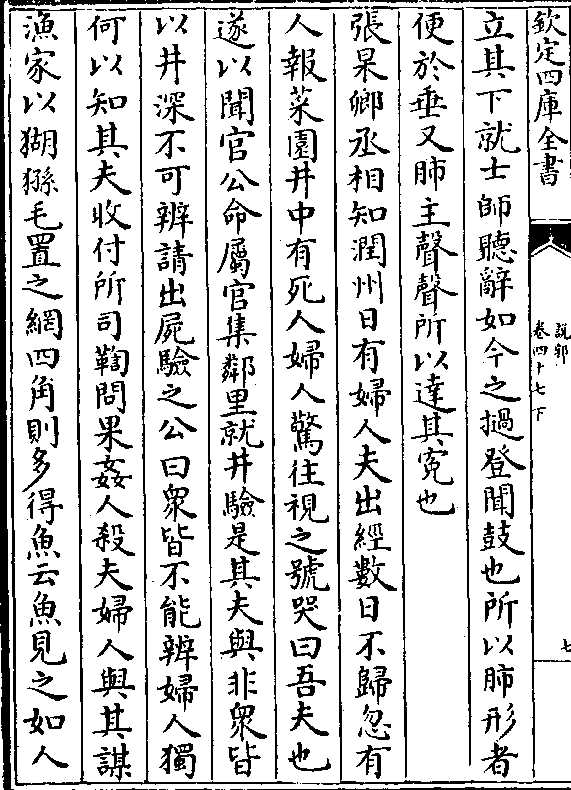 欽定四庫全書
說郛
卷四十七下
七
立其下就士師聽辭如今之撾登聞鼓也所以肺形者
便於垂又肺主聲聲所以達其寃也
張杲卿丞相知潤州日有婦人夫出經數日不歸忽有
人報菜園井中有死人婦人驚往視之號哭曰吾夫也
遂以聞官公命屬官集鄰里就井驗是其夫與非衆皆
以井深不可辨請出屍驗之公曰衆皆不能辨婦人獨
何以知其夫收付所司鞫問果姦人殺夫婦人與其謀
漁家以猢猻毛置之網四角則多得魚云魚見之如人